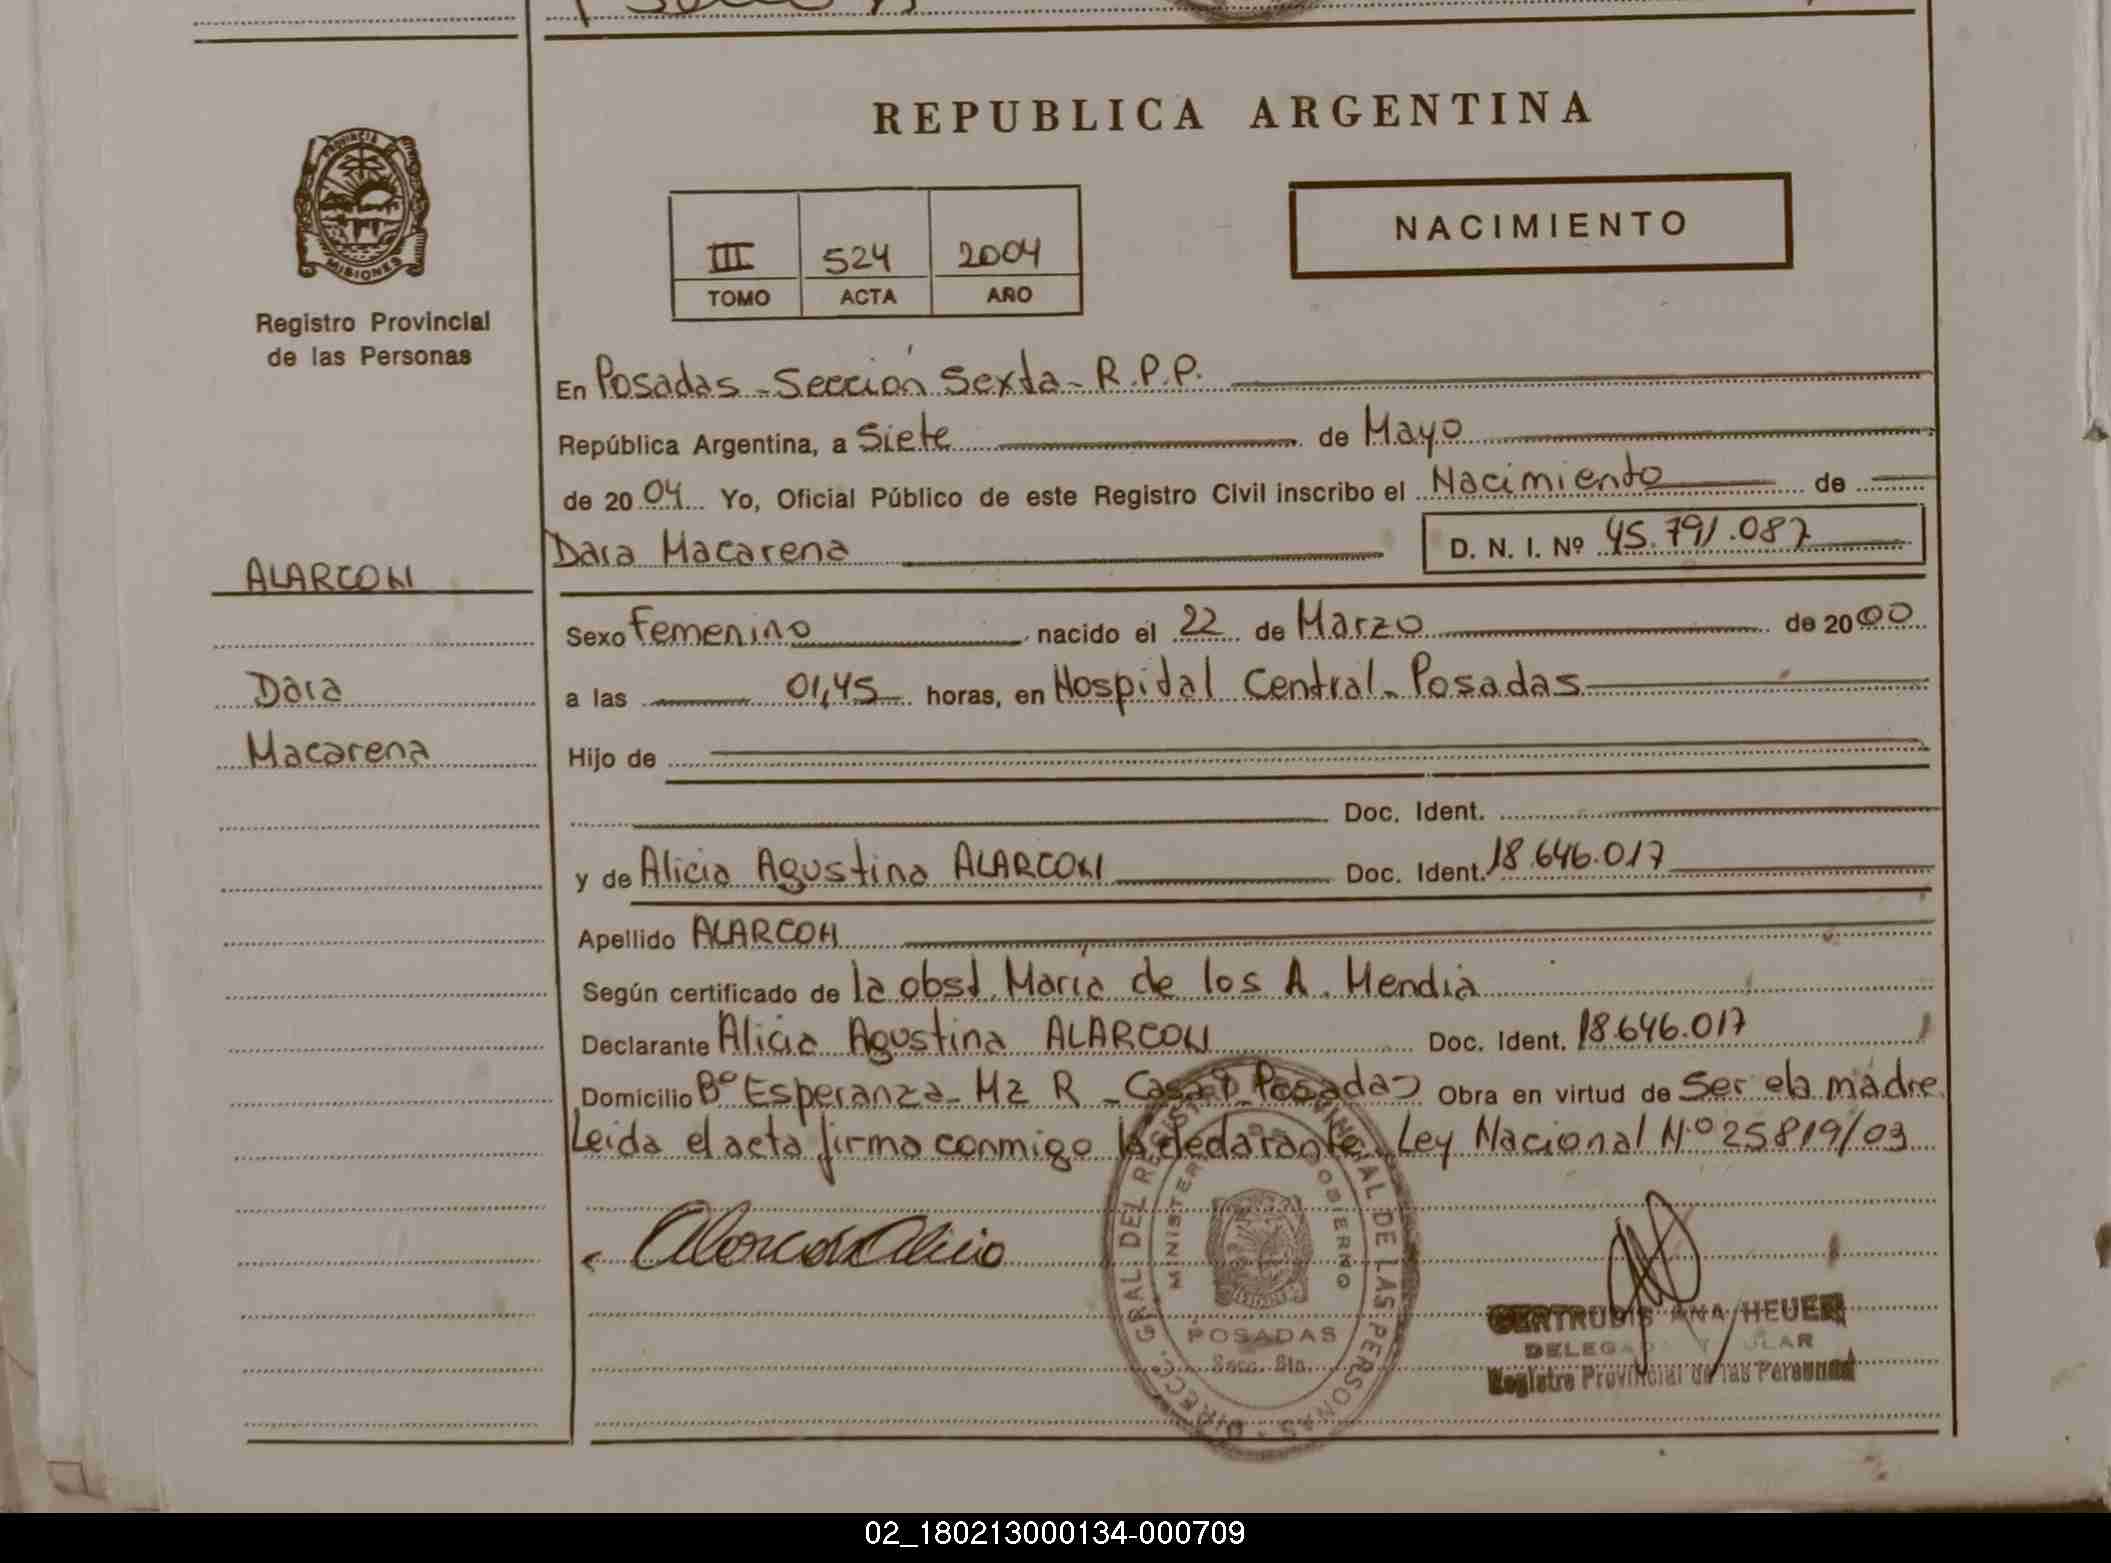 REPUBLICA ARGENTINA
PROVINCIA DE
MISIONES
Registro Provincial
de las Personas
III 524 2004
TOMO ACTA AÑO
NACIMIENTO
En Posadas - Sección Sexta - R.P.P.
República Argentina, a Siete de Mayo
de 2004 Yo, Oficial Público de este Registro Civil inscribo el Nacimiento de
Dara Macarena D. N. I. Nº 45.791.087
ALARCON
Sexo Femenino nacido el 22 de Marzo de 2000
Dara
a las 01,45 horas, en Hospital Central - Posadas
Macarena
Hijo de
Doc. Ident.
y de Alicia Agustina ALARCON Doc. Ident. 18.646.017
Apellido ALARCON
Según certificado de la obst. María de los A. Mendia
Declarante Alicia Agustina ALARCON Doc. Ident. 18.646.017
Domicilio Bº Esperanza - Mz R - Casa Posadas Obra en virtud de Ser ela madre
Leida el acta firma conmigo la declarante. Ley Nacional N.º 25819/03
Alarcon Alicia
DIRECC. GRAL DEL REGIST. PROVINCIAL DE LAS PERSONAS
MINISTERIO DE GOBIERNO
POSADAS
Secc. 6ta.
GERTRUDIS ANA HEUER
Registro Provincial de las Personas
02_180213000134-000709